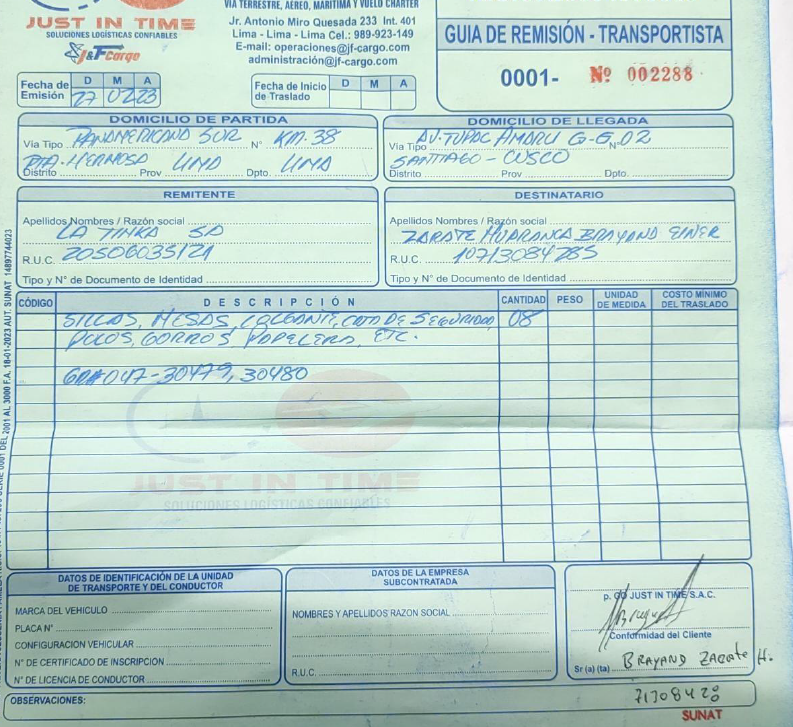 VIA TERRESTRE, AEREO, MARITIMA Y VUELO CHARTER
JUST IN TIME
SOLUCIONES LOGÍSTICAS CONFIABLES
J&F Cargo
Jr. Antonio Miro Quesada 233 Int. 401
Lima - Lima - Lima Cel.: 989-923-149
E-mail: operaciones@jf-cargo.com
administración@jf-cargo.com
GUIA DE REMISIÓN - TRANSPORTISTA
0001- Nº 002288
Fecha de Emisión D M A
27 02 23
Fecha de Inicio de Traslado D M A
DOMICILIO DE PARTIDA
Via Tipo PANAMERICANA SUR Nº KM. 38
PTA. HERMOSA LIMA LIMA
Distrito Prov Dpto.
DOMICILIO DE LLEGADA
Via Tipo AV. TUPAC AMARU G-G Nº 02
SANTIAGO - CUSCO
Distrito Prov. Dpto.
REMITENTE
Apellidos Nombres / Razón social
LA TINKA SA
R.U.C. 20506035121
Tipo y N° de Documento de Identidad
DESTINATARIO
Apellidos Nombres / Razón social
ZARATE HUARANCA BRAYAND EINER
R.U.C. 10713084285
Tipo y N° de Documento de Identidad
CÓDIGO DESCRIPCIÓN CANTIDAD PESO UNIDAD DE MEDIDA COSTO MÍNIMO DEL TRASLADO
SILLAS, MESAS, COLGANTE, CAJA DE SEGURIDAD, 08
POLOS, GORROS, PAPELERA, ETC.
047-30479, 30480
JUST IN TIME
SOLUCIONES LOGÍSTICAS CONFIABLES
DATOS DE IDENTIFICACIÓN DE LA UNIDAD
DE TRANSPORTE Y DEL CONDUCTOR
MARCA DEL VEHICULO
PLACA N°
CONFIGURACION VEHICULAR
N° DE CERTIFICADO DE INSCRIPCION
N° DE LICENCIA DE CONDUCTOR
DATOS DE LA EMPRESA
SUBCONTRATADA
NOMBRES Y APELLIDOS RAZON SOCIAL
R.U.C.
JUST IN TIME S.A.C.
Conformidad del Cliente
Sr (a) (ta) BRAYAND ZARATE H.
71308428
OBSERVACIONES:
SUNAT
DEL 2001 AL 3000 F.A. 18-01-2023 AUT. SUNAT 14897744023